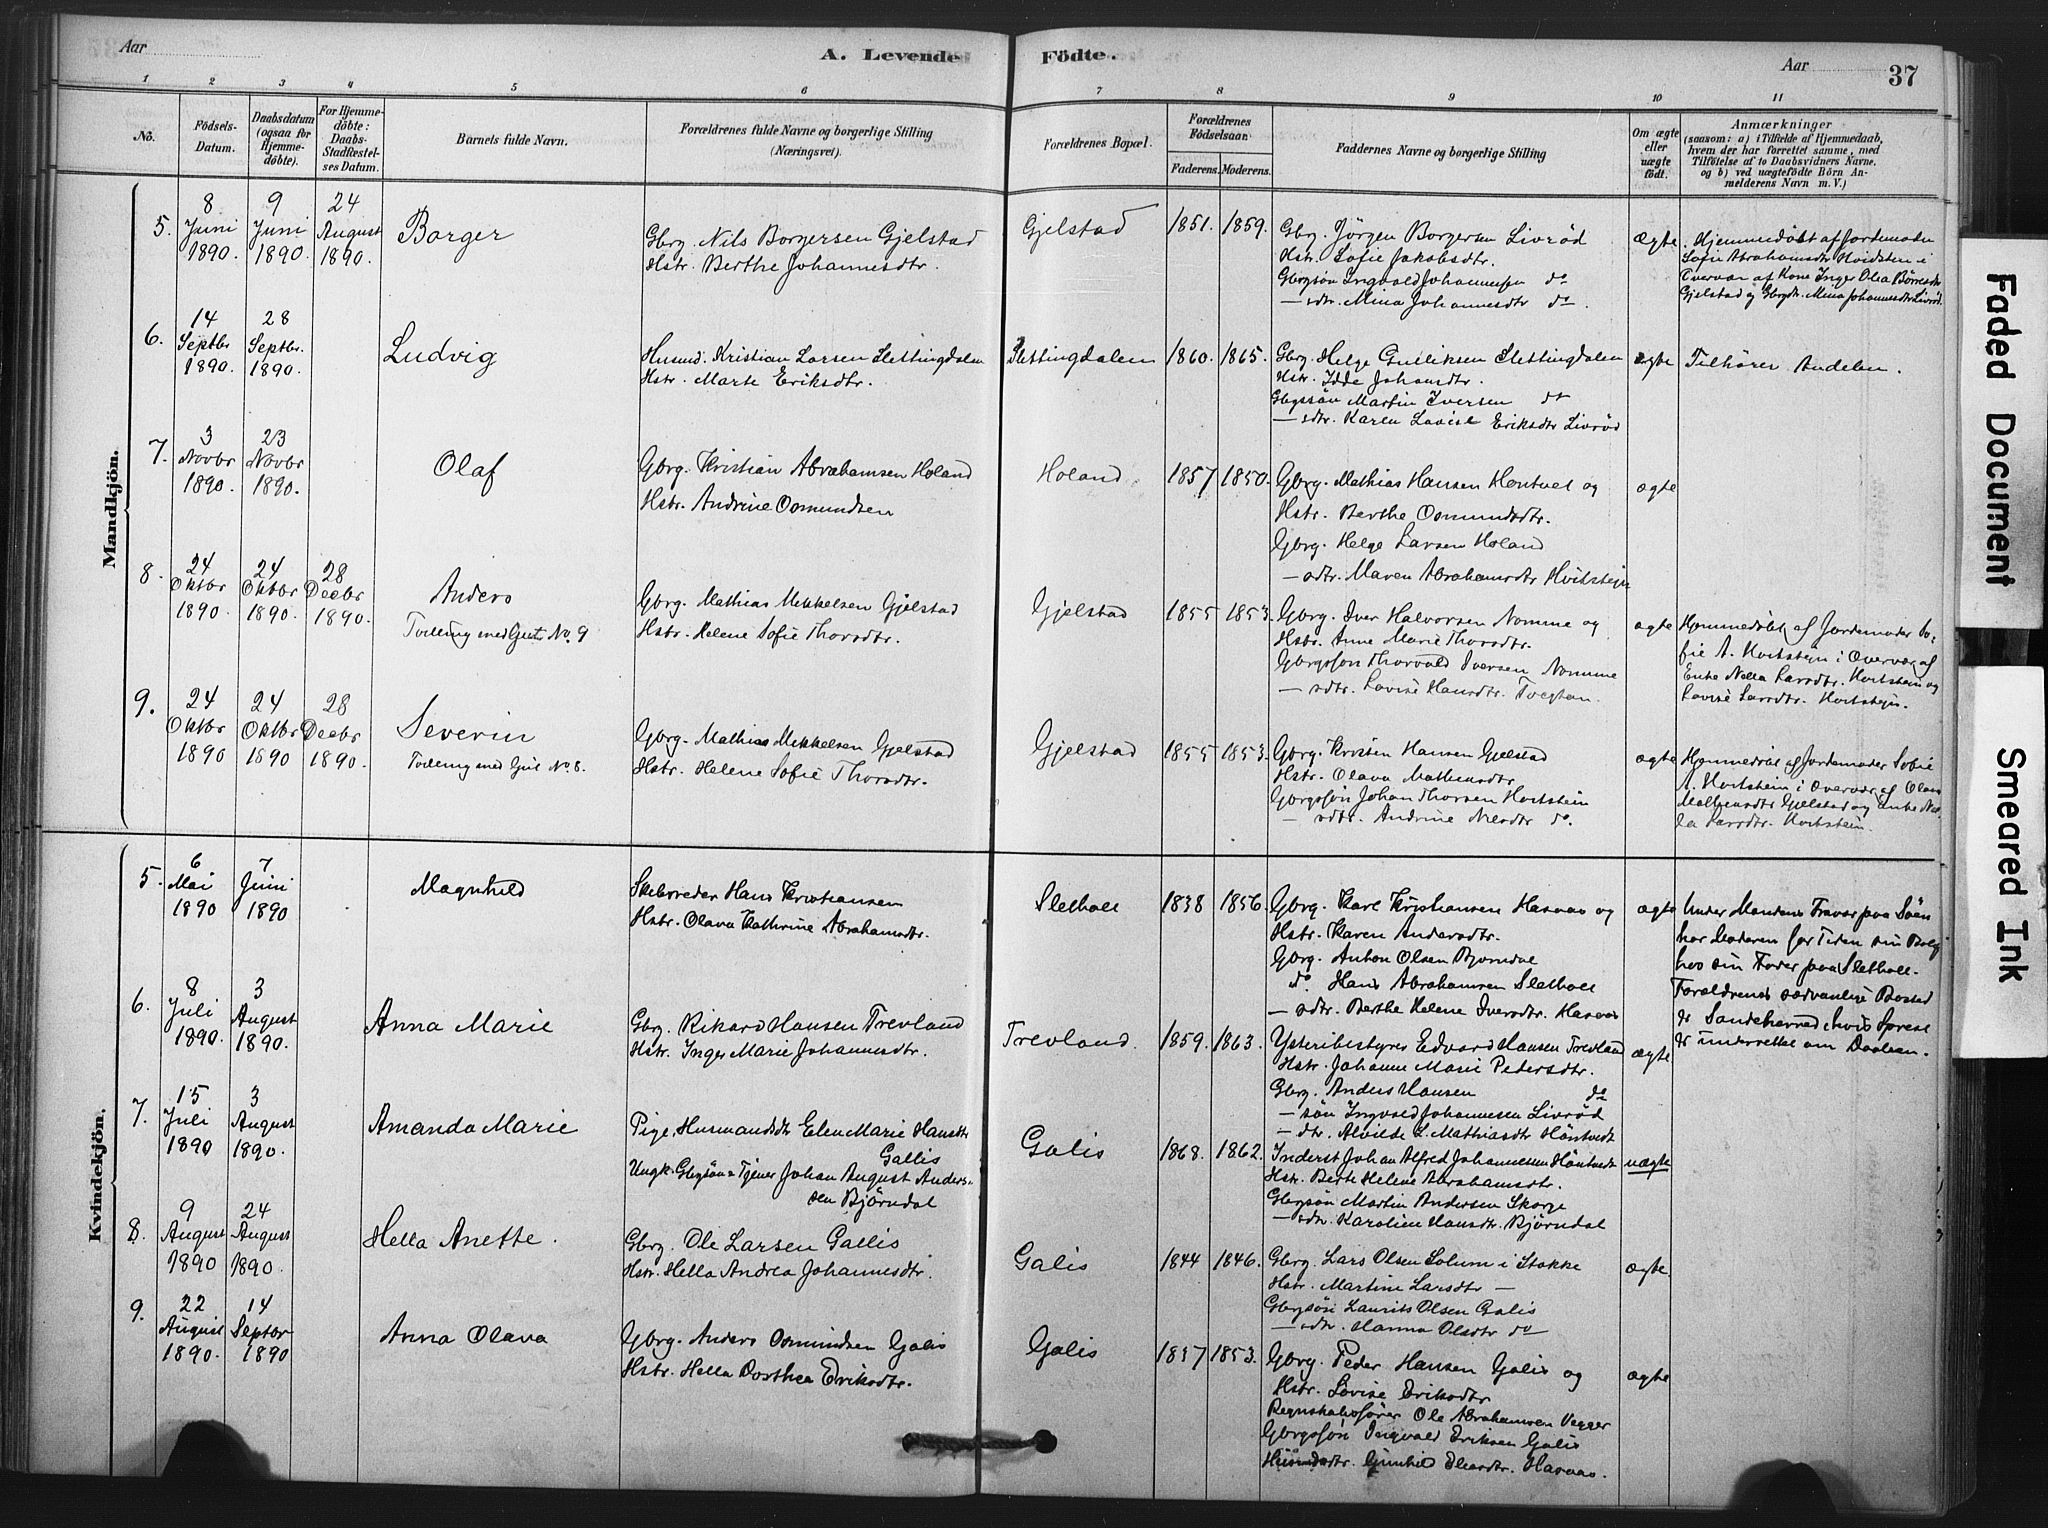 Aar
A. Levende Födte.
Aar
37
1 2 3 4 5 6 7 8 9 10 11
No.
Födsels-
Datum.
Daabsdatum
(ogsaa for
Hjemme-
döbte).
For Hjemme-
döbte:
Daabs-
Stadfæstel-
ses Datum.
Barnets fulde Navn.
Forældrenes fulde Navne og borgerlige Stilling
(Næringsvei).
Forældrenes Bopæl.
Forældrenes
Födselsaar.
Faderens. Moderens.
Faddernes Navne og borgerlige Stilling
Om ægte
eller
uægte
födt.
Anmærkninger
(saasom: a) i Tilfælde af Hjemmedaab,
hvem der har forrettet samme, med
Tilföielse af to Daabsvidners Navne,
og b) ved uægtefödte Börn An-
melderens Navn m. V.)
Mandkjön.
5.
8
Juni
1890.
9
Juni
1890.
24
August
1890.
Borger
Gbrg. Nils Borgersen Gjelstad
Hstr. Berthe Johannesdtr.
Gjelstad
1851. 1859.
Gbrg. Jörgen Borgersen Livröd
Hstr. Sofie Jakobsdtr.
Gbrgsön Ingvald Johannessen do
— sdtr. Mina Johannesdtr do.
ægte
Hjemmedöbt af Jordemoder
Sofie Abrahamsdtr Hvidsten i
Overvær af Kone Inger Olea Börresdtr
Gjelstad og Gbrgdtr. Mina Johannesdtr Livröd.
6.
14
Septbr
1890.
28
Septbr.
1890.
Ludvig
Husmd. Kristian Larsen Slettingdalen
Hstr. Marte Eriksdtr.
Slettingdalen
1860. 1865.
Gbrg. Helge Gulliksen Slettingdalen
Hstr. Idde Johansdtr.
Gbrgssön Martin Iversen do
— sdtr. Karen Lovise Eriksdtr Livröd
ægte
Tilhörer Andebu.
7.
3
Novbr
1890.
23
Novbr
1890.
Olaf
Gbrg. Kristian Abrahamsen Holand
Hstr. Andrine Osmundsen
Holand
1857 1850.
Gbrg. Mathias Hansen Hontvet og
Hstr. Berthe Osmundsdtr.
Gbrg. Helge Larsen Holand
— sdtr. Maren Abrahamsdtr Hvitstein
ægte
8.
24
Oktbr
1890.
24
Oktbr
1890.
28
Decbr
1890.
Anders
Tvilling med Gut No. 9
Gbrg. Mathias Mikkelsen Gjelstad
Hstr. Helene Sofie Thorsdtr.
Gjelstad
1855 1853.
Gbrg. Iver Halvorsen Nomme og
Hstr. Anne Marie Thorsdtr.
Gbrgssön Thorvald Iversen Nomme
— sdtr. Lovise Hansdtr. Tvegtan.
ægte
Hjemmedöbt af Jordemoder So-
fie A. Hvitstein i Overvær af
Enke Nella Larsdtr. Hvitstein og
Lovise Larsdtr. Hvitstein.
9.
24
Oktbr
1890
24
Oktbr
1890
28
Decbr
1890.
Severin
Tvilling med Gut No. 8.
Gbrg. Mathias Mikkelsen Gjelstad
Hstr. Helene Sofie Thorsdtr.
Gjelstad
1855 1853.
Gbrg. Kristen Hansen Gjelstad
Hstr. Olava Mathiasdtr.
Gbrgssön Johan Thorsen Hvitstein
— sdtr. Andrine Nilsdtr do.
ægte
Hjemmedöbt af Jordemoder Sofie
A. Hvitstein i Overvær af Olava
Mathiasdtr Gjelstad og Enke Nel-
la Larsdtr. Hvitstein.
Kvindekjön.
5.
6
Mai
1890
7
Juni
1890
Magnhild
Skibsreder Hans Kristiansen
Hstr. Olava Kathrine Abrahamsdtr.
Sletholt
1838 1856.
Gbrg. Karl Kristiansen Hasaas og
Hstr. Karen Andersdtr.
Gbrg. Anton Olsen Bjorndal
do. Hans Abrahamsen Sletholt
— sdtr. Berthe Helene Iversdtr. Hasaas
ægte
Under Mandens Fravær paa Söen
har Moderen for Tiden sin Bolig
hos sin Fader paa Sletholt.
Forældrenes sædvanlige Bosted
er Sandeherred, hvis Sprest
er underrettet om Daaben.
6.
8
Juli
1890.
3
August
1890.
Anna Marie
Gbrg. Rikard Hansen Trevland
Hstr. Inger Marie Johannesdtr.
Trevland.
1859. 1863.
Ysteribestyrer Edvard Hansen Trevland
Hstr. Johanne Marie Pedersdtr.
Gbrg. Anders Hansen do
— sön Ingvald Johannesen Livröd
— dtr. Alvilde L. Mathiasdtr Höntvedt
ægte
7.
15
Juli
1890
3
August
1890.
Amanda Marie
Pige, Husmandsdtr Elen Marie Hansdtr
Gallis
Ungk. Gbrgsön & Tjener Johan August Anders-
sen Björndal
Galis
1868. 1862.
Inderst Johan Alfred Johannessen Höntvedt
Hstr. Berte Helene Abrahamsdtr.
Gbrgsön Martin Andersen Skorge
— sdtr. Karoline Hansdtr. Björndal
uægte
8.
9
August
1890
24
August
1890.
Hella Anette.
Gbrg. Ole Larsen Gallis
Hstr. Hella Andrea Johannesdtr.
Galis
1844 1846.
Gbrg. Lars Olsen Solum i Stokke
Hstr. Martine Larsdtr —
Gbrgsön Laurits Olsen Galis
— sdtr. Hanna Olsdtr do
ægte.
9.
22
August
1890.
14
Septbr
1890
Anna Olava
Gbrg. Anders Osmundsen Galis
Hstr. Hella Dorthea Eriksdtr.
Galis
1857 1853.
Gbrg. Peder Hansen Galis og
Hstr. Lovise Eriksdtr
Regnskabsförer Ole Abrahamsen Vegger
Gbrgssön Ingvald Eriksen Galis
Husmdsdtr. Gunhild Elisdtr. Hasaas.
ægte
Faded Document
Smeared Ink